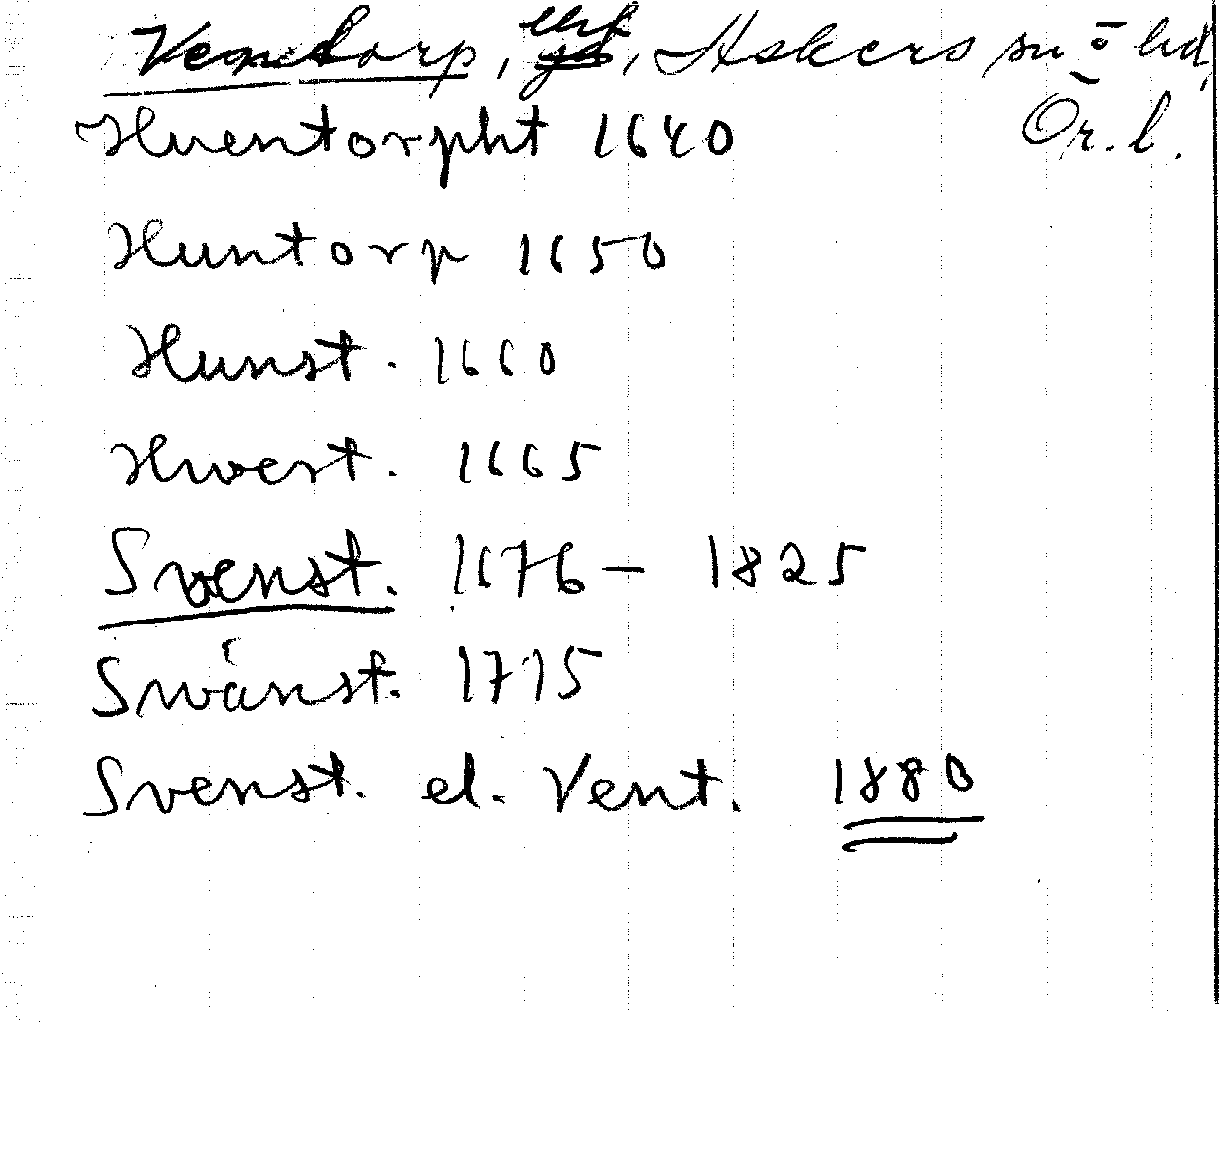 Ventorp, , Askers sn o hd,
Ör. l.
Huentorpht 1640
Huntorp 1650
Hunst. 1660
Hwest. 1665
Svenst. 1676 – 1825
Swänst. 1775
Svenst. el. Vent. 1880